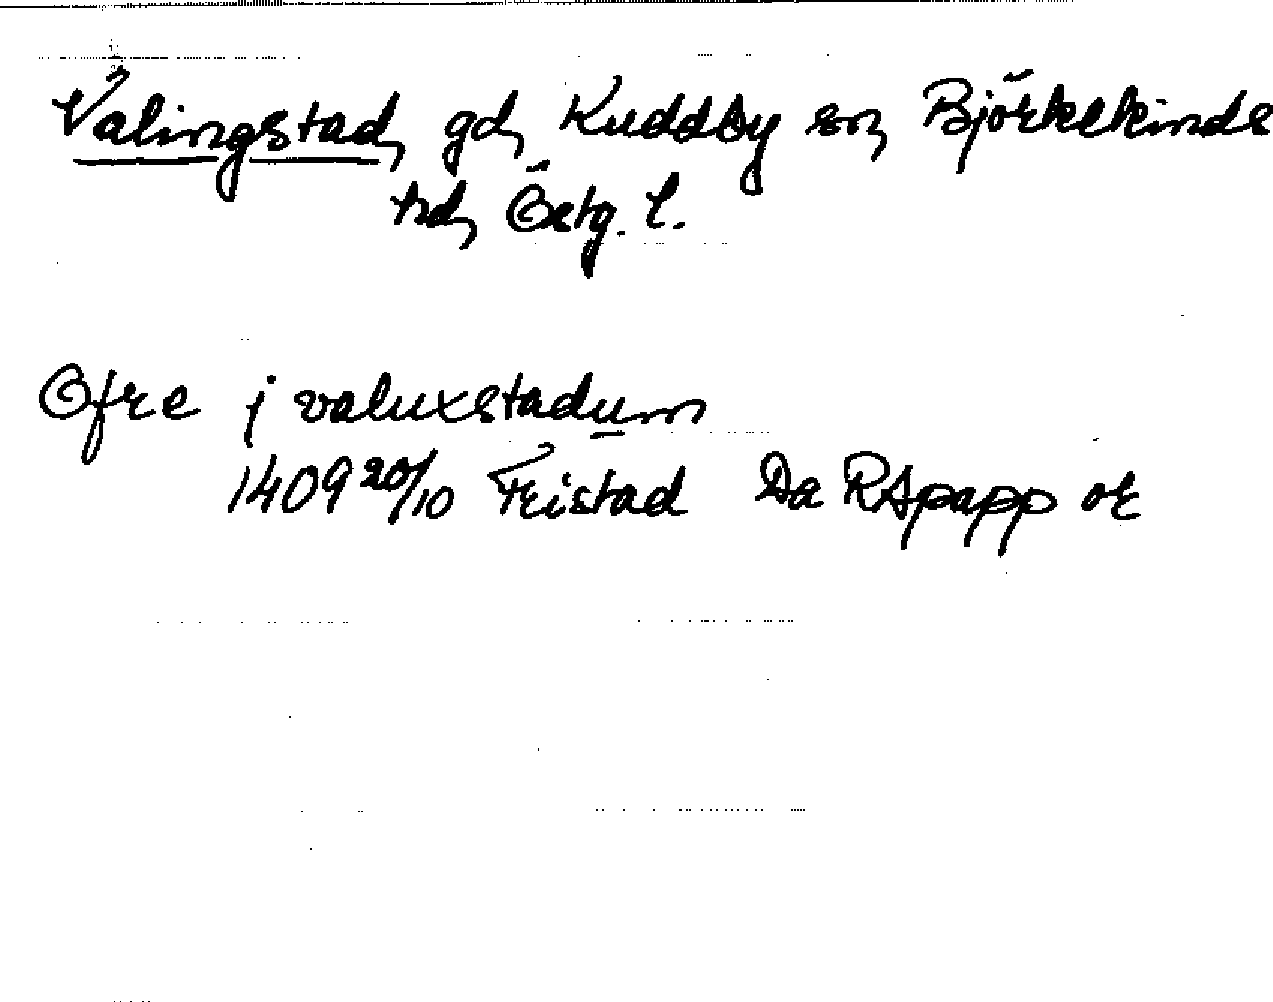 Valingstad, gd, Kuddby sn, Björkekinds
hd, Östg. l.
Ofre j valuxstadum
1409 20/10 Fristad Da RApapp or